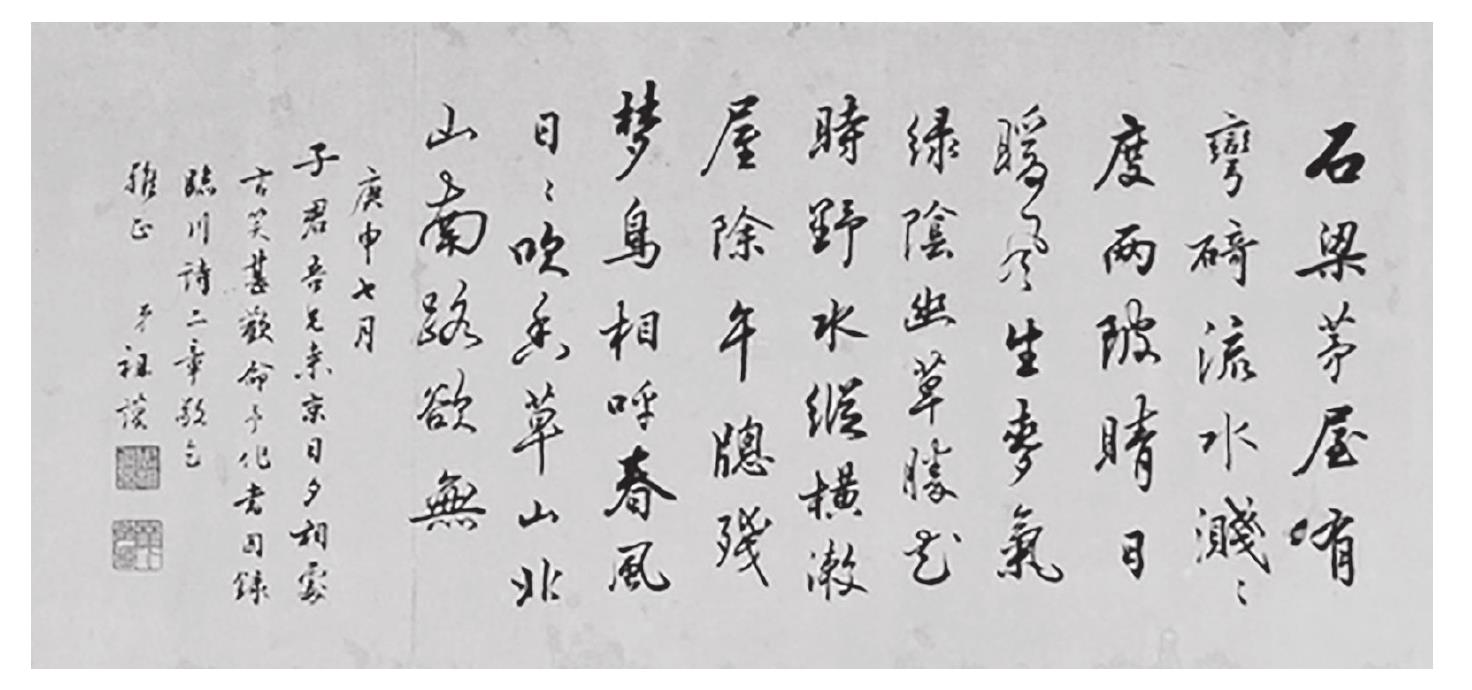 石梁茅屋有
彎碕流水濺〻
度兩陂晴日
暖風生麥氣
绿陰幽草勝花
時野水縱橫漱
屋除午牕殘
梦鳥相呼春風
日〻吹香草山北
山南路欲無
庚申七月
子君吾兄来京日夕相聚
言笑甚歡命予作書因録
臨川詩二章敬乞
雅正 弟祖謨